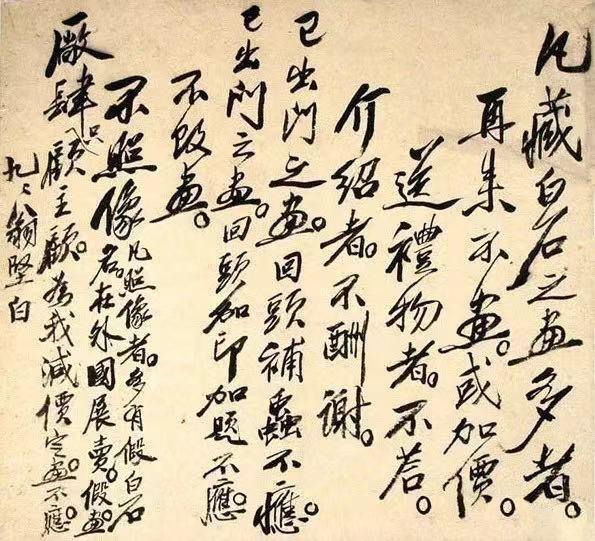 凡藏白石之畫多者。
再來不畫。或加價。
送禮物者。不答。
介紹者。不酬謝。
已出門之畫。回頭補蟲不應。
已出門之畫。回頭加印加題不應。
不改畫。
不照像。凡照像者。多有假白石
名。在外國展賣。假畫。
廠肆只顧主顧。為我減價定畫。不應。
九〻翁堅白